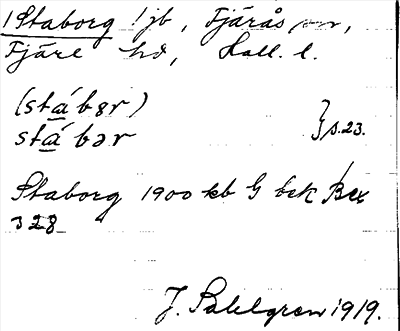 1 Staborg 1 jb, Fjärås sn,
Fjäre hd, Hall. l.
(stá̱bɐr) } s. 23.
stá̱bər
Staborg 1900 kb G bck
328
J. Sahlgren 1919.